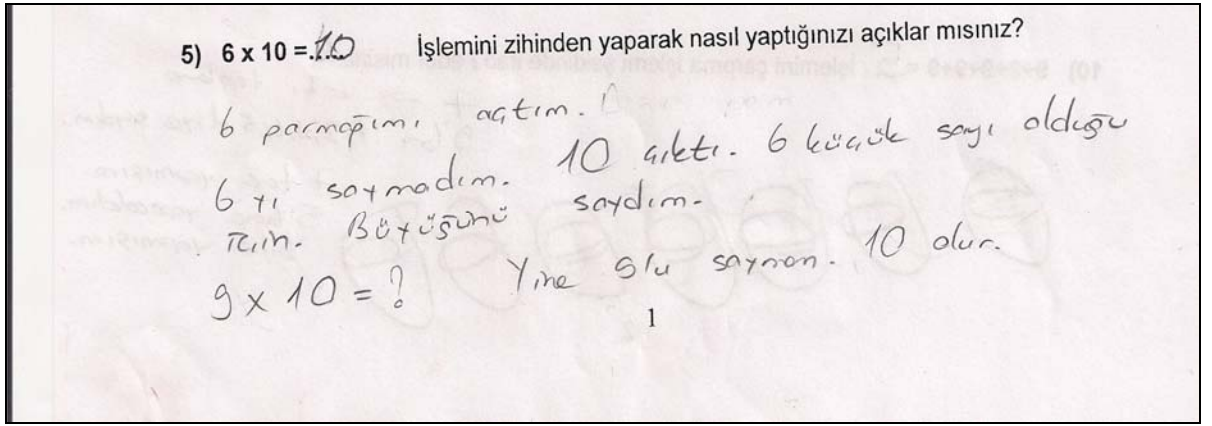 5) 6 x 10 = 10 İşlemini zihinden yaparak nasıl yaptığınızı açıklar mısınız?
6 parmağımı açtım.
6 yı saymadım. 10 çıktı. 6 küçük sayı olduğu
için. Büyüğünü saydım.
9 x 10 = ? Yine 9'u saymam. 10 olur.
1